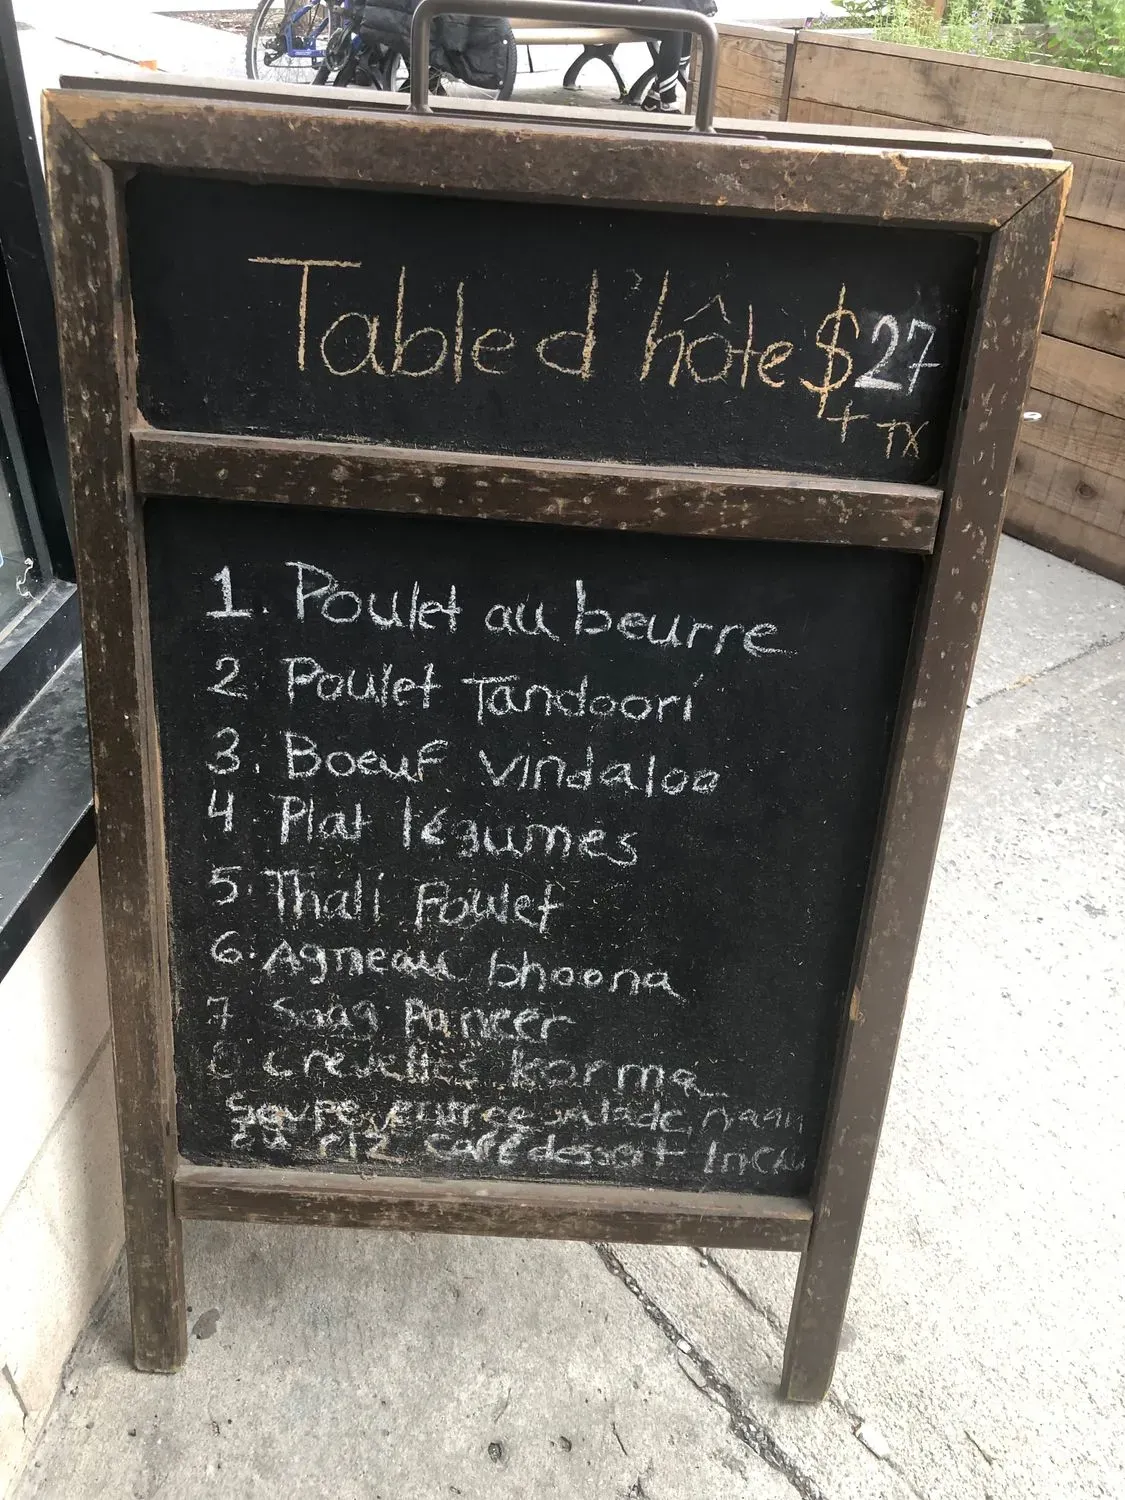 Table d'hôte $27
+ TX
1. Poulet au beurre
2 Poulet Tandoori
3. Boeuf vindaloo
4 Plat légumes
5. Thali Poulet
6. Agneau bhoona
7 Saag Paneer
8 crevettes korma
Soupe, entree salade, naan
ou riz café dessert Inclu